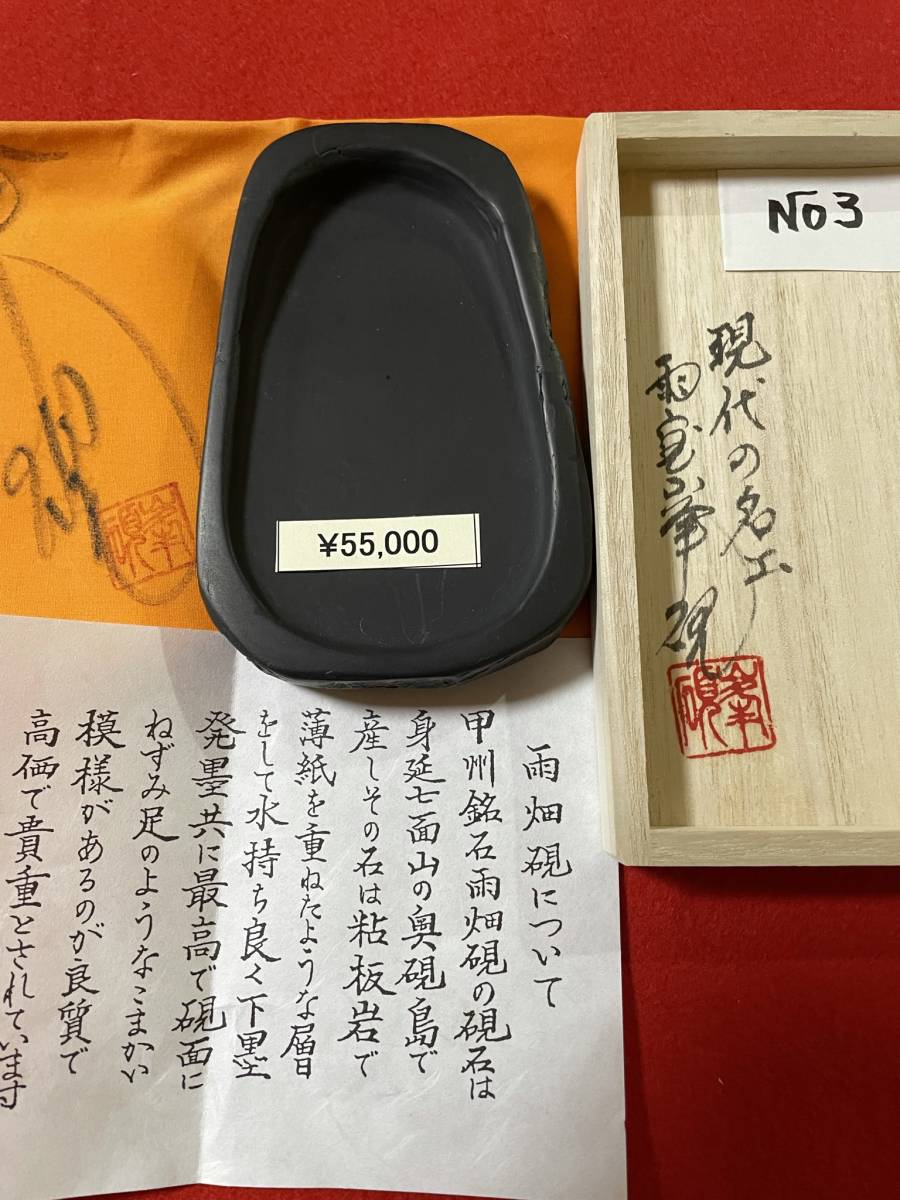 No3
現代の名工
雨宮峯硯
¥55,000
雨畑硯について
甲州銘石雨畑硯の硯石は
身延七面山の奥硯島で
産しその石は粘板岩で
薄紙を重ねたような層
をして水持ち良く下墨
発墨共に最高で硯面に
ねずみ足のようなこまかい
模様があるのが良質で
高価で貴重とされています